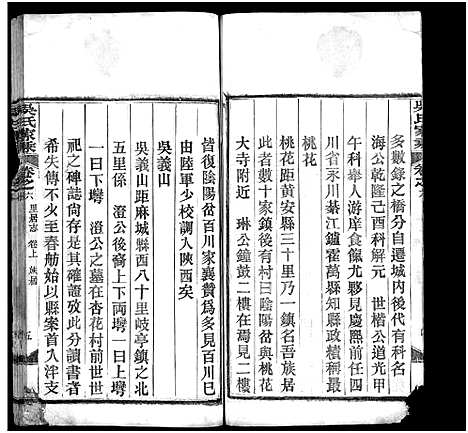 多數錄之橋分自遷城內後代有科名
海公乾隆己酉科解元　世楷公道光甲
午科舉人游庠食餼尤夥贤慶熙前任四
川省永川綦江鑪霍萬縣知縣政績可觀
桃花
桃花距黃安三十里乃一鎮名吾族居
此者數十家鎮後有村曰陰陽岔與桃花
大寺附近　琳公鐘鼓二樓在焉見二樓
皆復陰陽岔百川家襄贊為多見百川已
由陸軍少校調入陝西矣
吳義山
吳義山距麻城縣西八十里岐亭鎮之北
五里係　澄公後裔上下兩塆一曰上塆
一曰下塆　澄公之墓在杏花村前世世
祀之碑誌尚存是其確證攷此分讀書者
希失傳不火至春舫始以縣案首入泮支
吳氏家乘　卷之六　里居志　卷上　族居　五
吳氏家乘　卷之